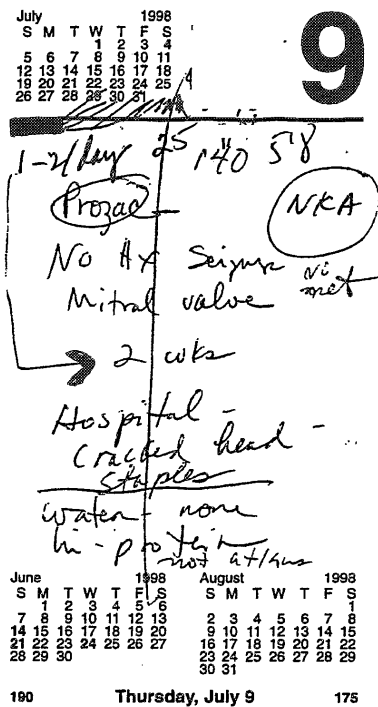 July 1998
S M T W T F S
1 2 3 4
5 6 7 8 9 10 11
12 13 14 15 16 17 18
19 20 21 22 23 24 25
26 27 28 29 30 31
9
1-2/day 25 140 58
Prozac - NKA
No Hx Seizure
Mitral valve
2 wks
Hospital -
Cracked head -
Staples
water - none
hi - protein
not
June 1998
S M T W T F S
1 2 3 4 5 6
7 8 9 10 11 12 13
14 15 16 17 18 19 20
21 22 23 24 25 26 27
28 29 30
August 1998
S M T W T F S
1
2 3 4 5 6 7 8
9 10 11 12 13 14 15
16 17 18 19 20 21 22
23 24 25 26 27 28 29
30 31
190 Thursday, July 9 175